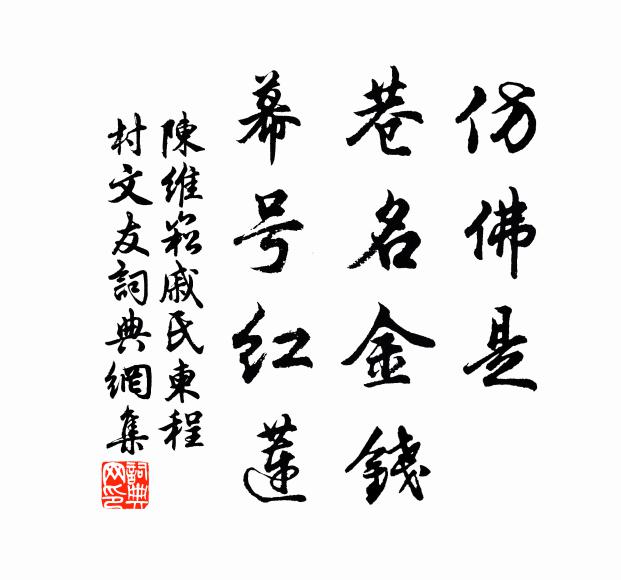 仿佛是
巷名金錢
幕号红蓮
陳維崧戚氏東程
村文友詞典網集
詞典
网印